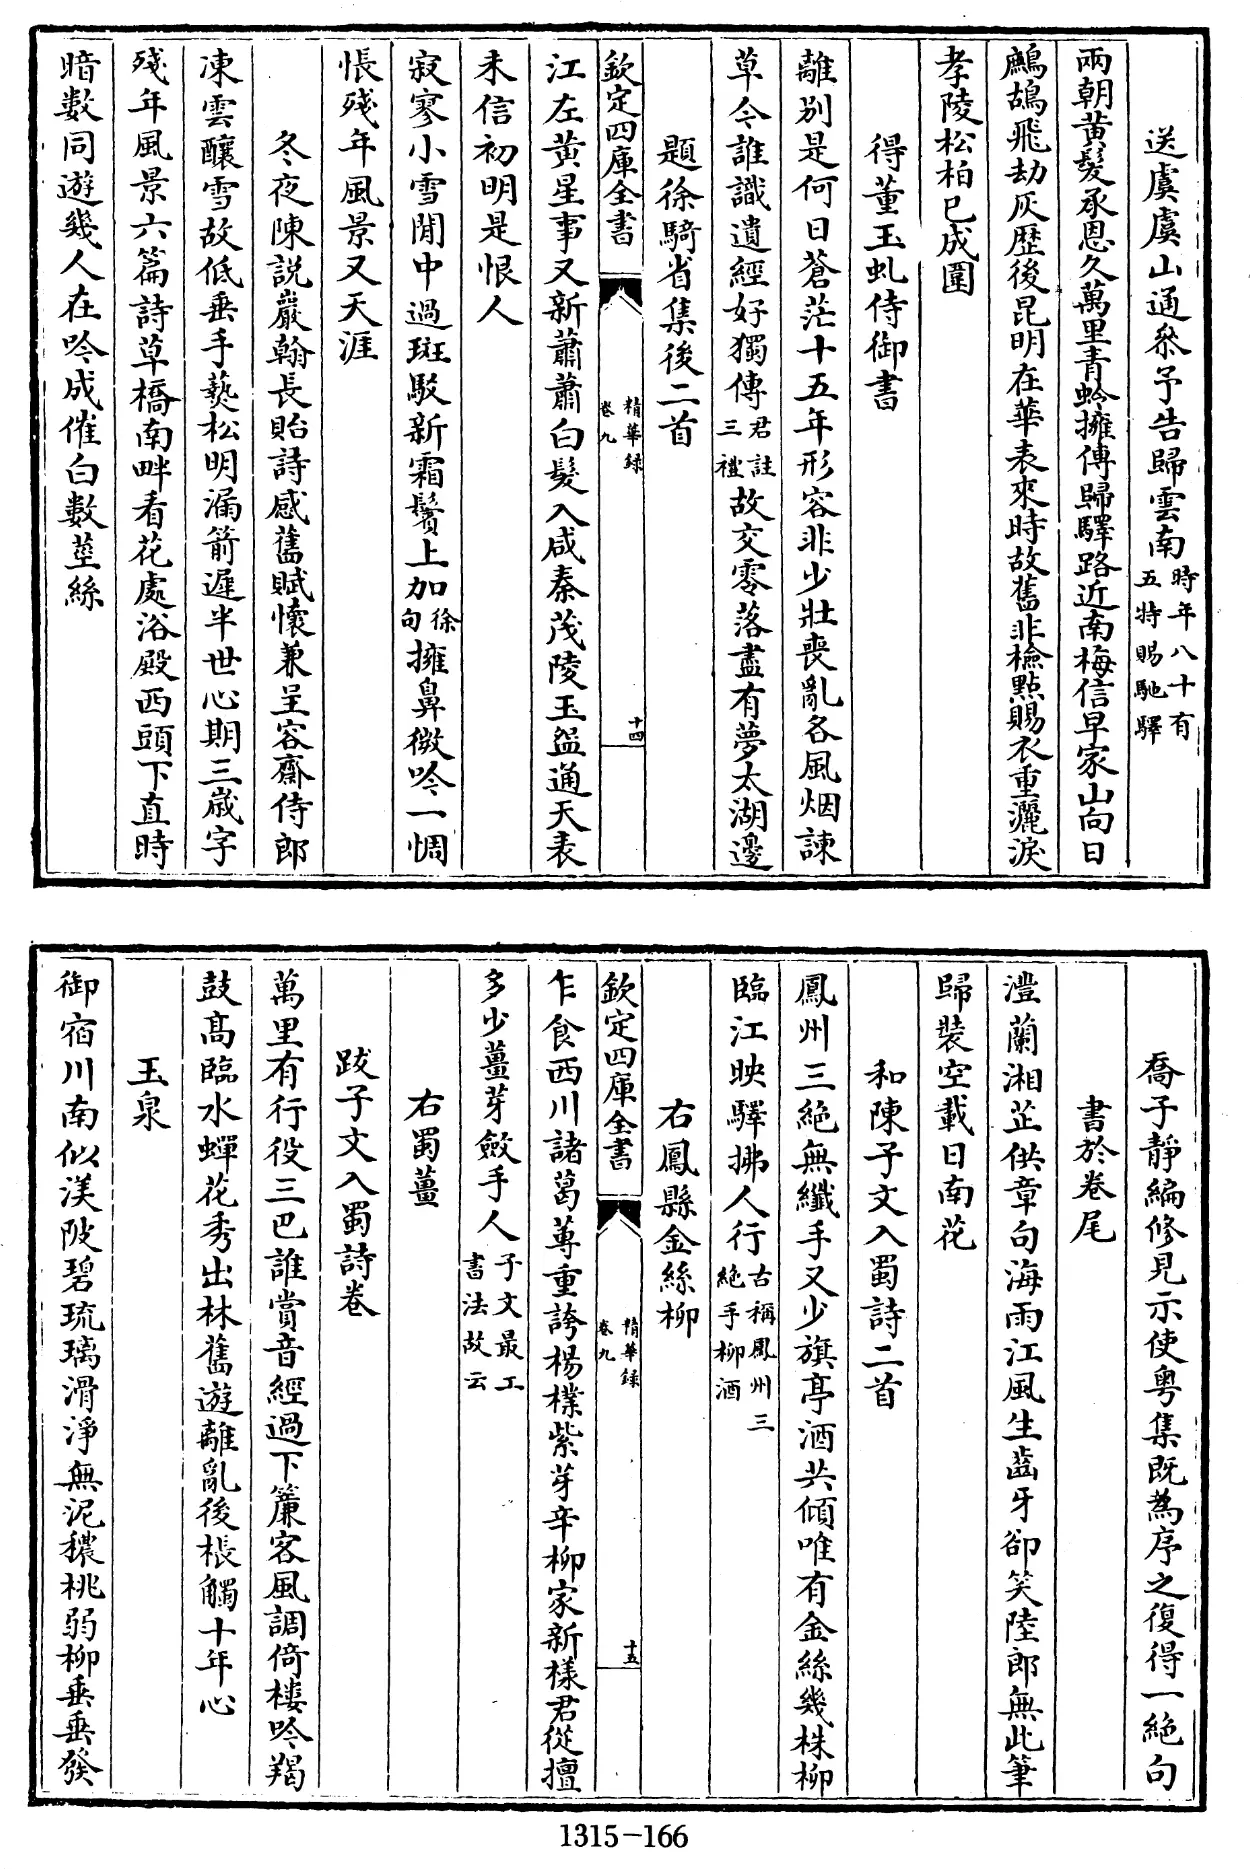 送虞虞山通叅予告歸雲南時年八十有五特賜馳驛
兩朝黃髮承恩久萬里青蛉擁傳歸驛路近南梅信早家山向日
鷓鴣飛劫灰歴後昆明在華表來時故舊非檢點賜衣重灑淚
孝陵松柏已成圍
得董玉虬侍御書
離別是何日蒼茫十五年形容非少壯喪亂各風烟諫
草今誰識遺經好獨傳君註三禮故交零落盡有夢太湖邊
題徐騎省集後二首
欽定四庫全書
精華録
卷九
十四
江左黃星事又新蕭蕭白髮入咸秦茂陵玉盌通天表
未信初明是恨人
寂寥小雪閒中過斑駁新霜鬢上加徐句擁鼻微吟一惆
悵殘年風景又天涯
冬夜陳說巖翰長貽詩感舊賦懷兼呈容齋侍郎
凍雲釀雪故低垂手爇松明漏箭遲半世心期三歲字
殘年風景六篇詩草橋南畔看花處浴殿西頭下直時
暗數同遊幾人在吟成催白數莖絲
喬子靜編修見示使粵集既為序之復得一絕句
書於卷尾
澧蘭湘芷供章句海雨江風生齒牙卻笑陸郎無此筆
歸裝空載日南花
和陳子文入蜀詩二首
鳳州三絕無纖手又少旗亭酒共傾唯有金絲幾株柳
臨江映驛拂人行古稱鳳州三絕手柳酒
右鳳縣金絲柳
欽定四庫全書
精華録
卷九
十五
乍食西川諸葛蓴重誇楊樸紫芽辛柳家新樣君從擅
多少薑芽斂手人子文最工書法故云
右蜀薑
跋子文入蜀詩卷
萬里有行役三巴誰賞音經過下簾客風調倚樓吟羯
鼓高臨水蟬花秀出林舊遊離亂後棖觸十年心
玉泉
御宿川南似渼陂碧琉璃滑淨無泥穠桃弱柳垂垂發
1315-166